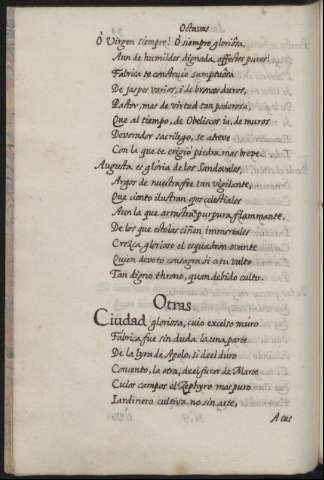 Octavas
O Virgen siempre! O siempre gloriosa,
Aun de humildes dignada affectos puros!
Fabrica te construie sumptuosa
De jaspes varios, i de bronces duros,
Pastor, mas de virtud tan poderosa,
Que al tiempo, de Obeliscos ia, de muros
Devorador sacrilego, se atreve
Con la que te erigiò piedra mas breve.
Augusta es gloria de los Sandovales,
Argos de nuestra fee tan vigilante,
Que ciento ilustran ojos celestiales
Aun la que arrastra purpura flammante.
De los que estolas ciñan immortales
Crezca glorioso el esquadron ovante
Quien devoto consagra oi a tu vulto
Tan digno throno, quan debido culto.
Otras
Ciudad gloriosa, cuio excelso muro
Fabrica fue sin duda la una parte
De la lyra de Apolo, si de el duro
Convento, la otra, de el furor de Marte
Cuios campos el Zephyro mas puro
Iardinero cultiva no sin arte,
A tus